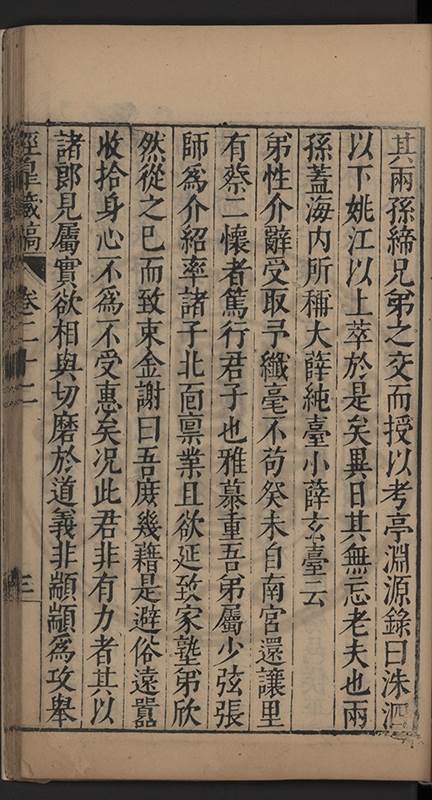 其兩孫締兄弟之交而授以考亭淵源錄曰洙泗
以下姚江以上萃於是矣異日其無忘老夫也兩
孫蓋海内所稱大薛純臺小薛玄臺云
弟性介辭受取予纖毫不苟癸未自南宮還讓里
有蔡二懷者篤行君子也雅慕重吾弟屬少弦張
師爲介紹率諸子北面禀業且欲延致家塾弟欣
然從之已而致束金謝曰吾庶幾藉是避俗遠囂
收拾身心不爲不受惠矣况此君非有力者其以
諸郎見屬實欲相與切磨於道義非顓顓爲攻舉
涇臯藏稿 卷二十二 三